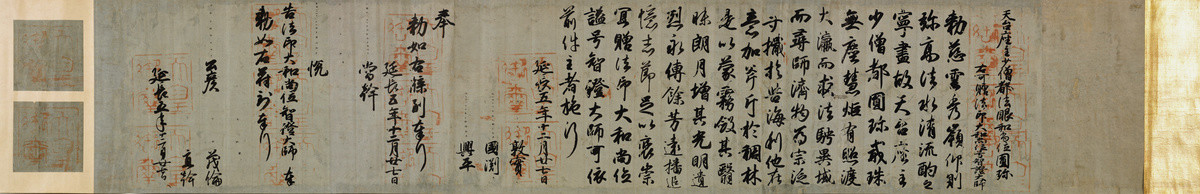 天台座主少僧都法眼和尚位圓珍
右可贈法印大和尚位号智證大師
勅慈雲秀嶺仰則
弥高法水清流酌之
寧盡故天台座主
少僧都圓珍戒珠
無塵慧炬有照渡
大瀛而求法騁異域
而尋師濟物為宗泛
舟檝於苦海利他在
意加斧斤於稠林
是以蒙霧斂其翳
昧朗月增其光明遺
烈永傳餘芳遠播追
憶志節足以褒崇
冝贈法印大和尚位
謚号智證大師可依
前件主者施行
延長五年十二月廿七日
敦實
國淵
興平
奉
勅如右牒到奉行
延長五年十二月廿七日
當幹
恱
告法印大和尚位智證大師奉
勅如右符到奉行
公彦
茂倫
直幹
延長五年十二月廿七日